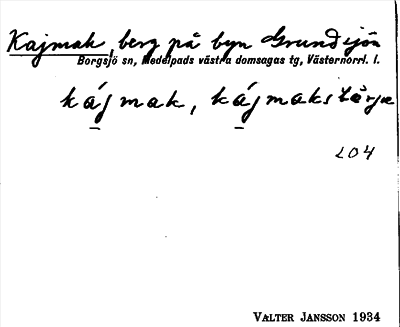 Kajmak, berg på byn Grundsjön
Borgsjö sn, Medelpads västra domsagas tg, Västernorrl. l.
kájmak, kájmaksbärje
204
VALTER JANSSON 1934